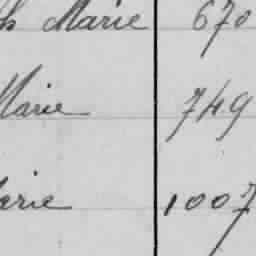 Marie 670
Marie 749
1007